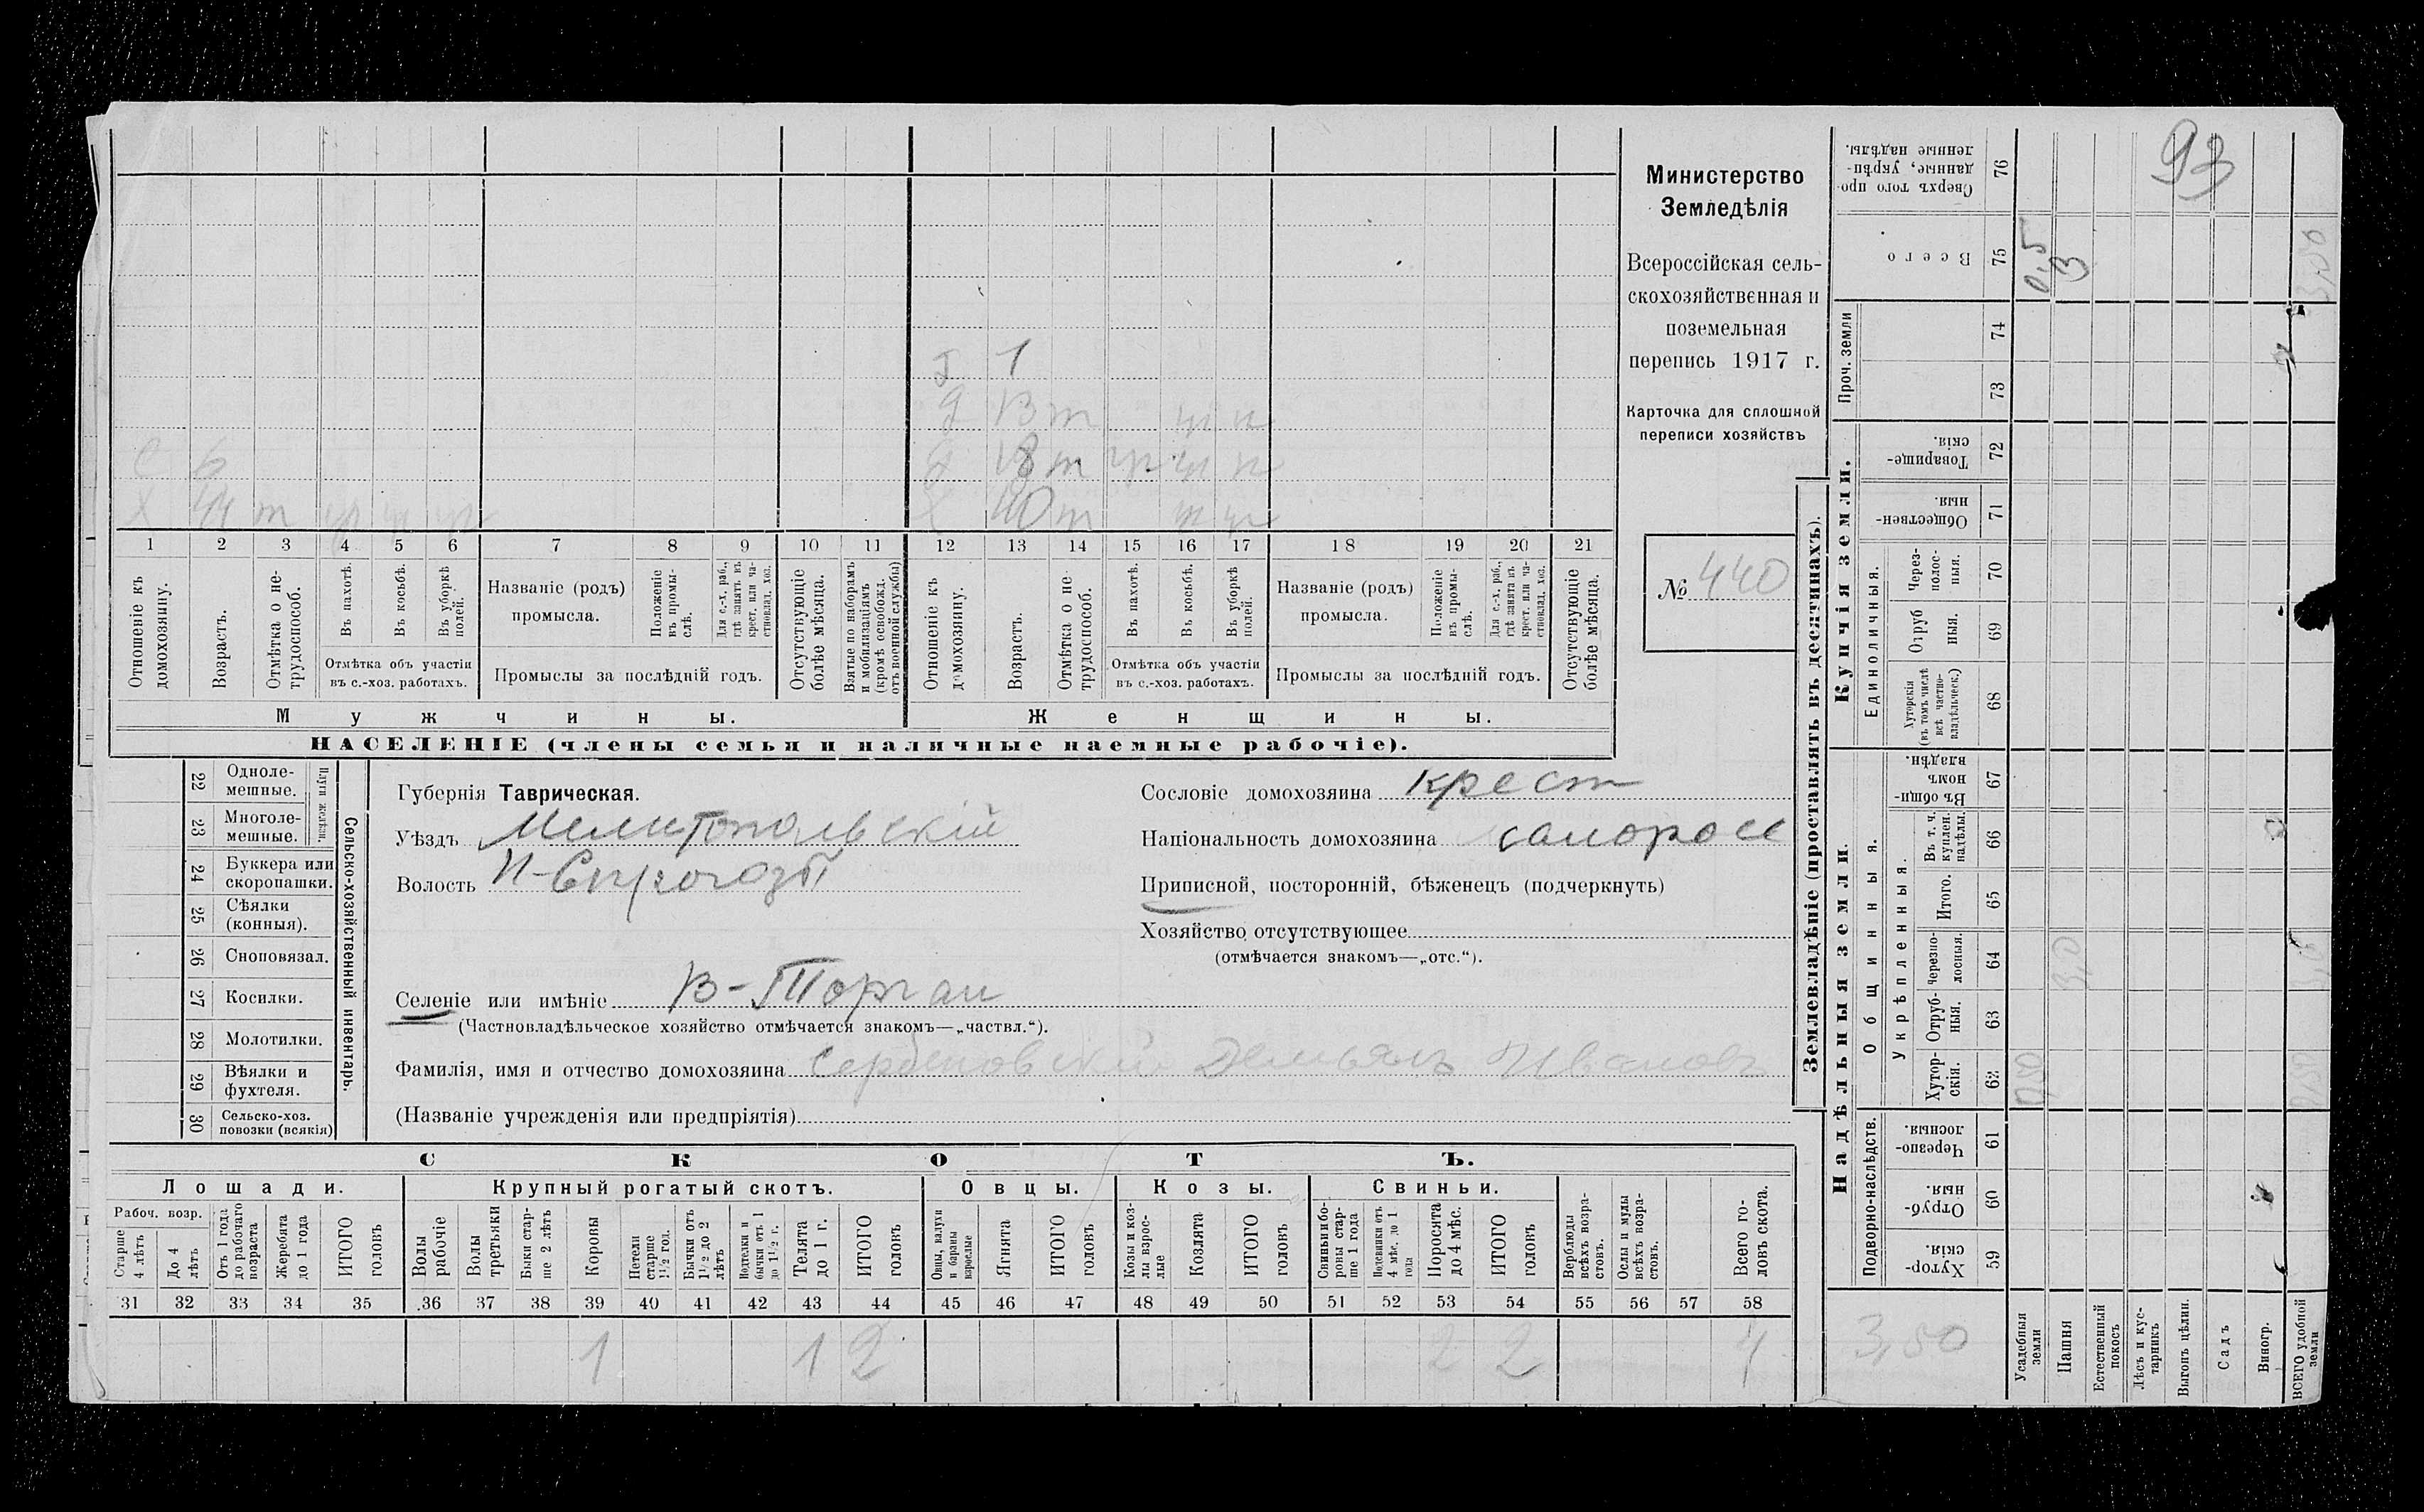 Министерство
Земледѣлія
Всероссійская сель-
скохозяйственная и
поземельная
перепись 1917 г.
Карточка для сплошной
переписи хозяйствъ
№ 440
93
1
13 т
С 6
18 т
Х 44 т
Х 40 т
1 2 3 4 5 6 7 8 9 10 11 12 13 14 15 16 17 18 19 20 21
Отношеніе къ домохозяину.
Возрастъ.
Отмѣтка о не-трудоспособ.
Въ пахотѣ.
Въ косьбѣ.
Въ уборкѣ полей.
Отмѣтка объ участіи въ с.-хоз. работахъ.
Названіе (родъ) промысла.
Положеніе въ промы-слѣ.
Для с.-х. раб., гдѣ занятъ въ крест. или ча-стновлад. хоз.
Промыслы за послѣдній годъ.
Отсутствующіе болѣе мѣсяца.
Взятые по наборамъ и мобилизаціямъ (кромѣ освобожд. отъ военной службы)
Отношеніе къ домохозяину.
Возрастъ.
Отмѣтка о не трудоспособ.
Въ пахотѣ.
Въ косьбѣ.
Въ уборкѣ полей.
Отмѣтка объ участіи въ с.-хоз. работахъ.
Названіе (родъ) промысла.
Положеніе въ промы-слѣ.
Для с.-х. раб., гдѣ занята въ крест. или ча-стновлад. хоз.
Промыслы за послѣдній годъ.
Отсутствующіе болѣе мѣсяца.
Мужчины.
Женщины.
НАСЕЛЕНІЕ (члены семьи и наличные наемные рабочіе).
22 Одноле-мешные.
23 Многоле-мешные.
Плуги желѣзн.
24 Буккера или скоропашки.
25 Сѣялки (конныя).
26 Сноповязал.
27 Косилки.
28 Молотилки.
29 Вѣялки и фухтеля.
30 Сельско-хоз. повозки (всякія)
Сельско-хозяйственный инвентарь.
Губернія Таврическая.
Уѣздъ Мелитопольскій
Волость Н-Сѣрогозы
Селеніе или имѣніе В-Торгаи
(Частновладѣльческое хозяйство отмѣчается знакомъ—„частвл.“).
Фамилія, имя и отчество домохозяина Сербиновскій Демьянъ Ивановъ
(Названіе учрежденія или предпріятія)
Сословіе домохозяина крест
Національность домохозяина малоросс
Приписной, посторонній, бѣженецъ (подчеркнуть)
Хозяйство отсутствующее
(отмѣчается знакомъ—„отс.“).
СКОТЪ.
Лошади.
Крупный рогатый скотъ.
Овцы.
Козы.
Свиньи.
Рабоч. возр.
Старше 4 лѣтъ
До 4 лѣтъ
Отъ 1 года до рабочаго возраста
Жеребята до 1 года
ИТОГО головъ
Волы рабочіе
Волы третьяки
Быки стар-ше 2 лѣтъ
Коровы
Нетели старше 1½ год.
Бычки отъ 1½ до 2 лѣтъ
Подтелки и бычки отъ 1 до 1½ г.
Телята до 1 г.
ИТОГО головъ
Овцы, валухи и бараны взрослые
Ягнята
ИТОГО головъ
Козы и коз-лы взрос-лые
Козлята
ИТОГО головъ
Свиньи и бо-ровы стар-ше 1 года
Подсвинки отъ 4 мѣс. до 1 года
Поросята до 4 мѣс.
ИТОГО головъ
Верблюды всѣхъ возра-стовъ.
Ослы и мулы всѣхъ возра-стовъ.
Всего го-ловъ скота.
31 32 33 34 35 36 37 38 39 40 41 42 43 44 45 46 47 48 49 50 51 52 53 54 55 56 57 58
1 1 2 2 2 4
Землевладѣніе (проставлять въ десятинахъ).
Надѣльныя земли.
Купчія земли.
Проч. земли
Подворно-наслѣдств.
Общинныя.
Укрѣпленныя.
Единоличныя.
Хутор-скія. 59
Отруб-ныя. 60
Черезпо-лосныя. 61
Хутор-скія. 62
Отруб-ныя. 63
Черезпо-лосныя. 64
Итого. 65
Въ т. ч. куплен. надѣлы. 66
Въ общи-номъ владѣн. 67
Хуторскія (въ томъ числѣ всѣ частно-владѣльческ.) 68
Отруб ныя. 69
Через-полос-ныя. 70
Обществен-ныя. 71
Товарище-скія. 72
73
74
Всего 75
Сверхъ того про-данные, укрѣп-ленные надѣлы. 76
Усадебныя земли
Пашня
Естественный покосъ
Лѣсъ и кус-тарникъ
Выгонъ цѣлин.
Садъ
Виногр.
ВСЕГО удобной земли
0,5
3
3,50
3,0
0,50
3,50